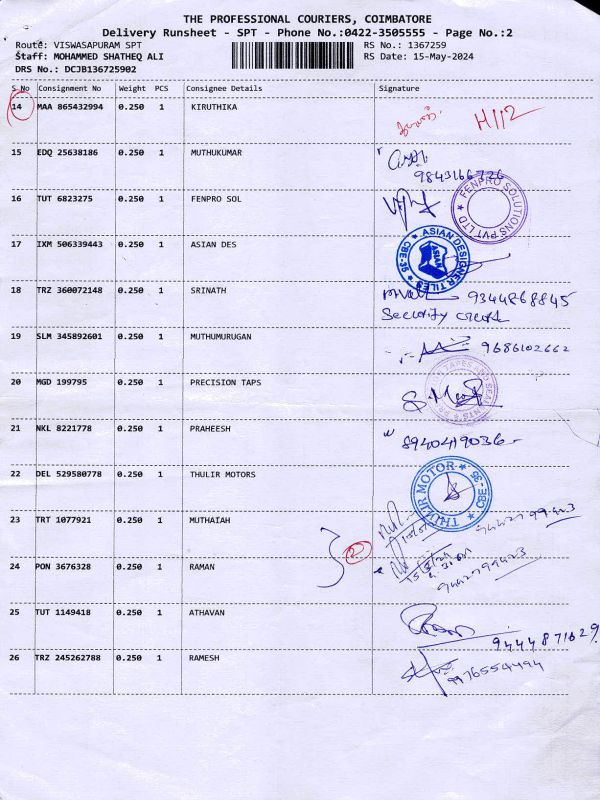 THE PROFESSIONAL COURIERS, COIMBATORE
Delivery Runsheet - SPT - Phone No.:0422-3505555 - Page No.:2
Route: VISWASAPURAM SPT RS No.: 1367259
Staff: MOHAMMED SHATHEQ ALI RS Date: 15-May-2024
DRS No.: DCJB136725902
S No Consignment No Weight PCS Consignee Details Signature
14 MAA 865432994 0.250 1 KIRUTHIKA H112
15 EDQ 25638186 0.250 1 MUTHUKUMAR
9843166726
16 TUT 6823275 0.250 1 FENPRO SOL
FENPRO SOLUTIONS PVT LTD
17 IXM 506339443 0.250 1 ASIAN DES
ASIAN DESIGNER TILES CBE-35
ASIAN
18 TRZ 360072148 0.250 1 SRINATH 9344868845
Security
19 SLM 345892601 0.250 1 MUTHUMURUGAN 9686102662
20 MGD 199795 0.250 1 PRECISION TAPS
TAPES AND
21 NKL 8221778 0.250 1 PRAHEESH 8940419036
22 DEL 529580778 0.250 1 THULIR MOTORS
THULIR MOTOR CBE-35
23 TRT 1077921 0.250 1 MUTHAIAH 9442799423
2
24 PON 3676328 0.250 1 RAMAN 15/5/24
9442799423
25 TUT 1149418 0.250 1 ATHAVAN
9444871629
26 TRZ 245262788 0.250 1 RAMESH 9976554494